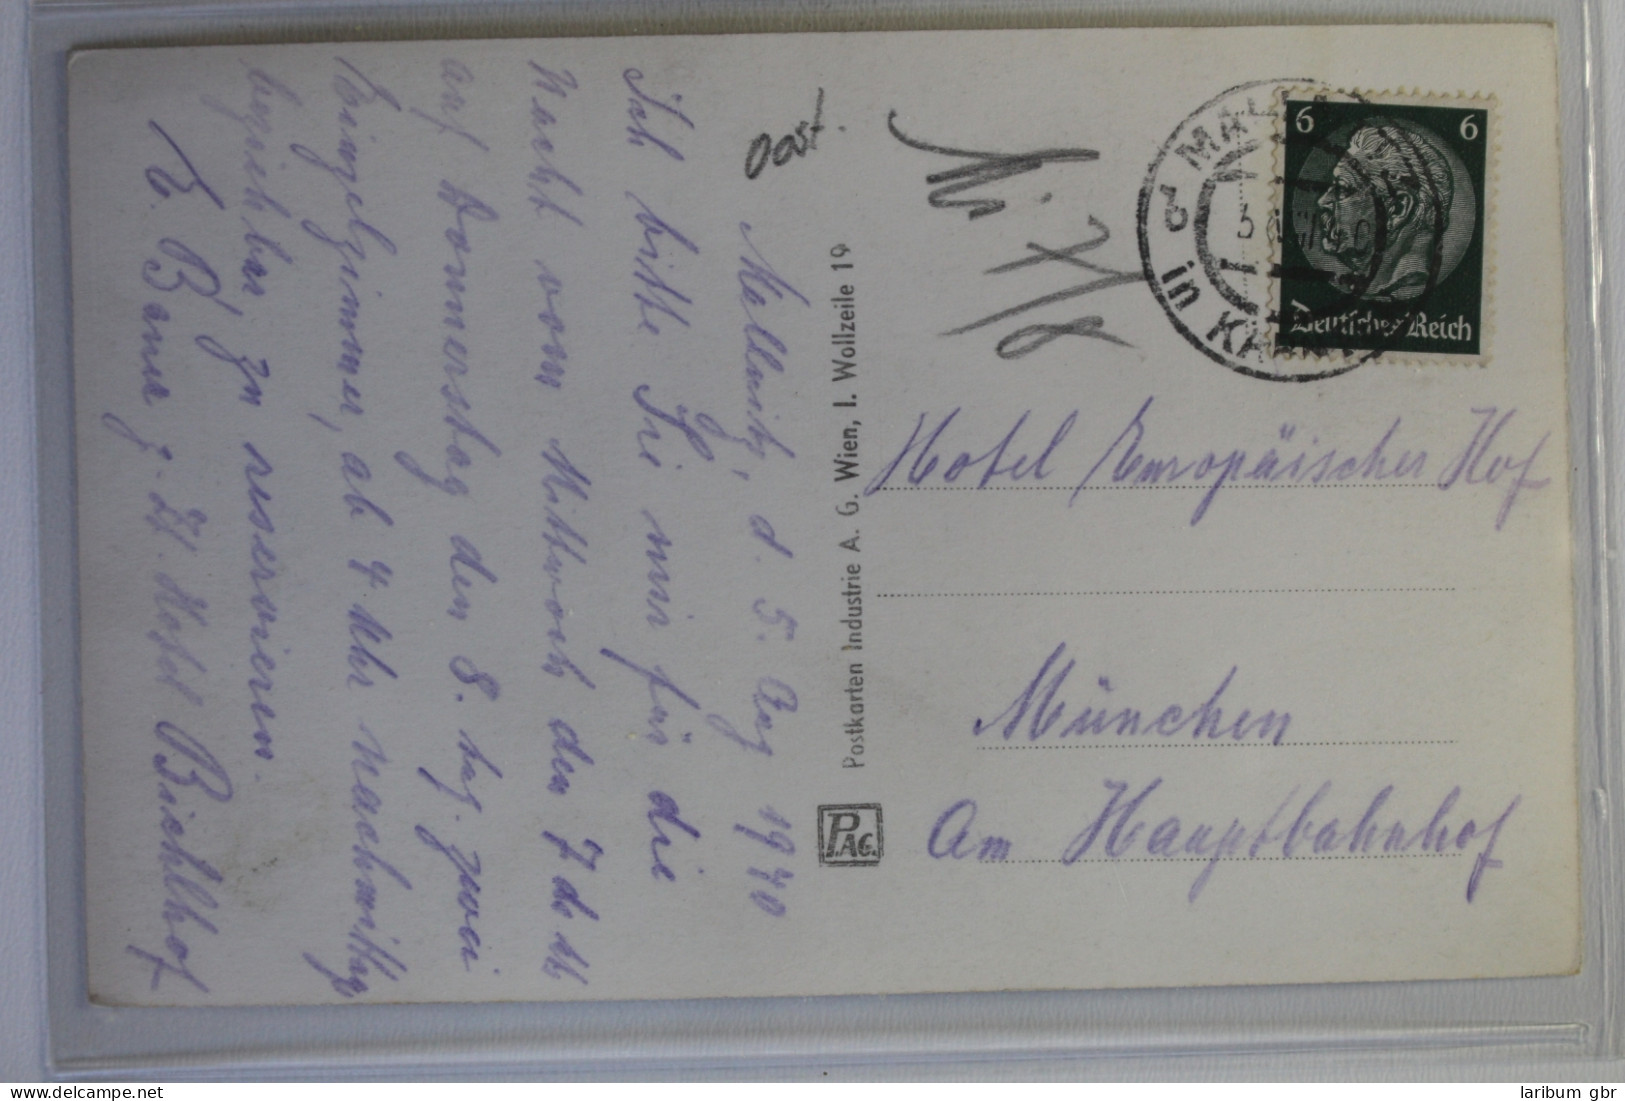 Mallnitz, d. 5. Aug 1940
Ich bitte Sie mir für die
Nacht vom Mittwoch den 7 ds M
auf Donnerstag den 8. zwei
Einzelzimmer, ab 4 Uhr nachmittag
beziehbar, zu reservieren.
E. Bauer, z. Zt. Hotel Bichlhof
Postkarten Industrie A. G. Wien, I. Wollzeile 19
PAG.
in
6 6
Deutsches Reich
Hotel Europäischer Hof
München
Am Hauptbahnhof
laribum gbr